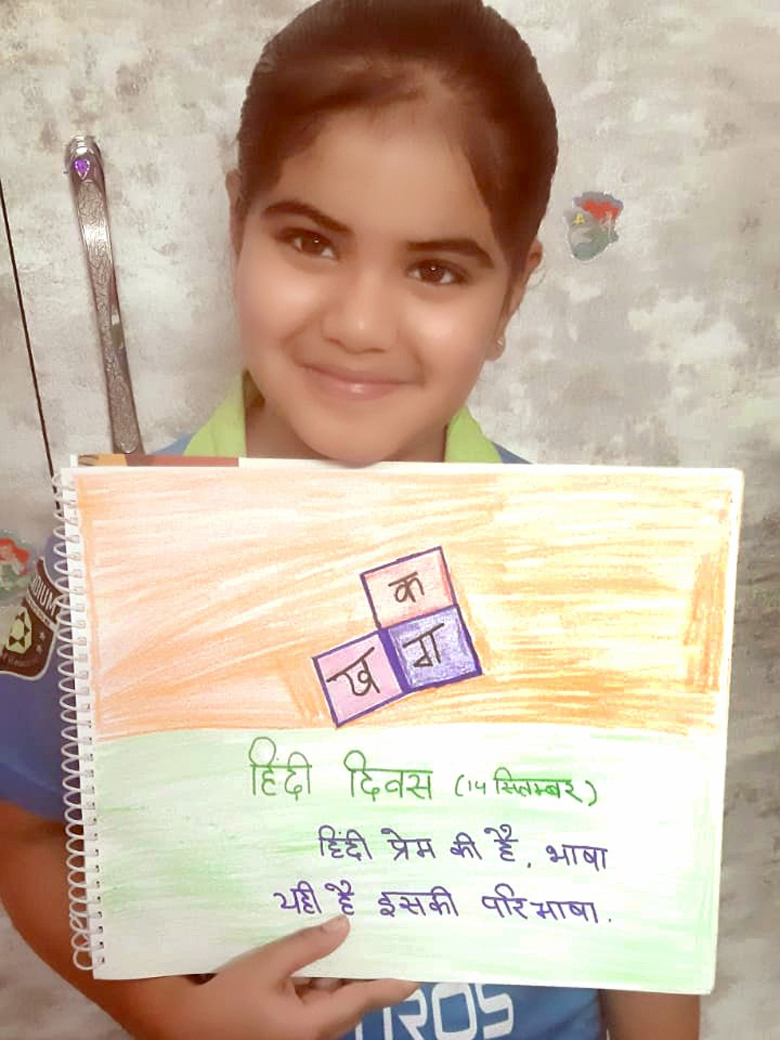 क
ख ग
हिंदी दिवस (14 सितम्बर)
हिंदी प्रेम की है, भाषा
यही है इसकी परिभाषा.
UROS